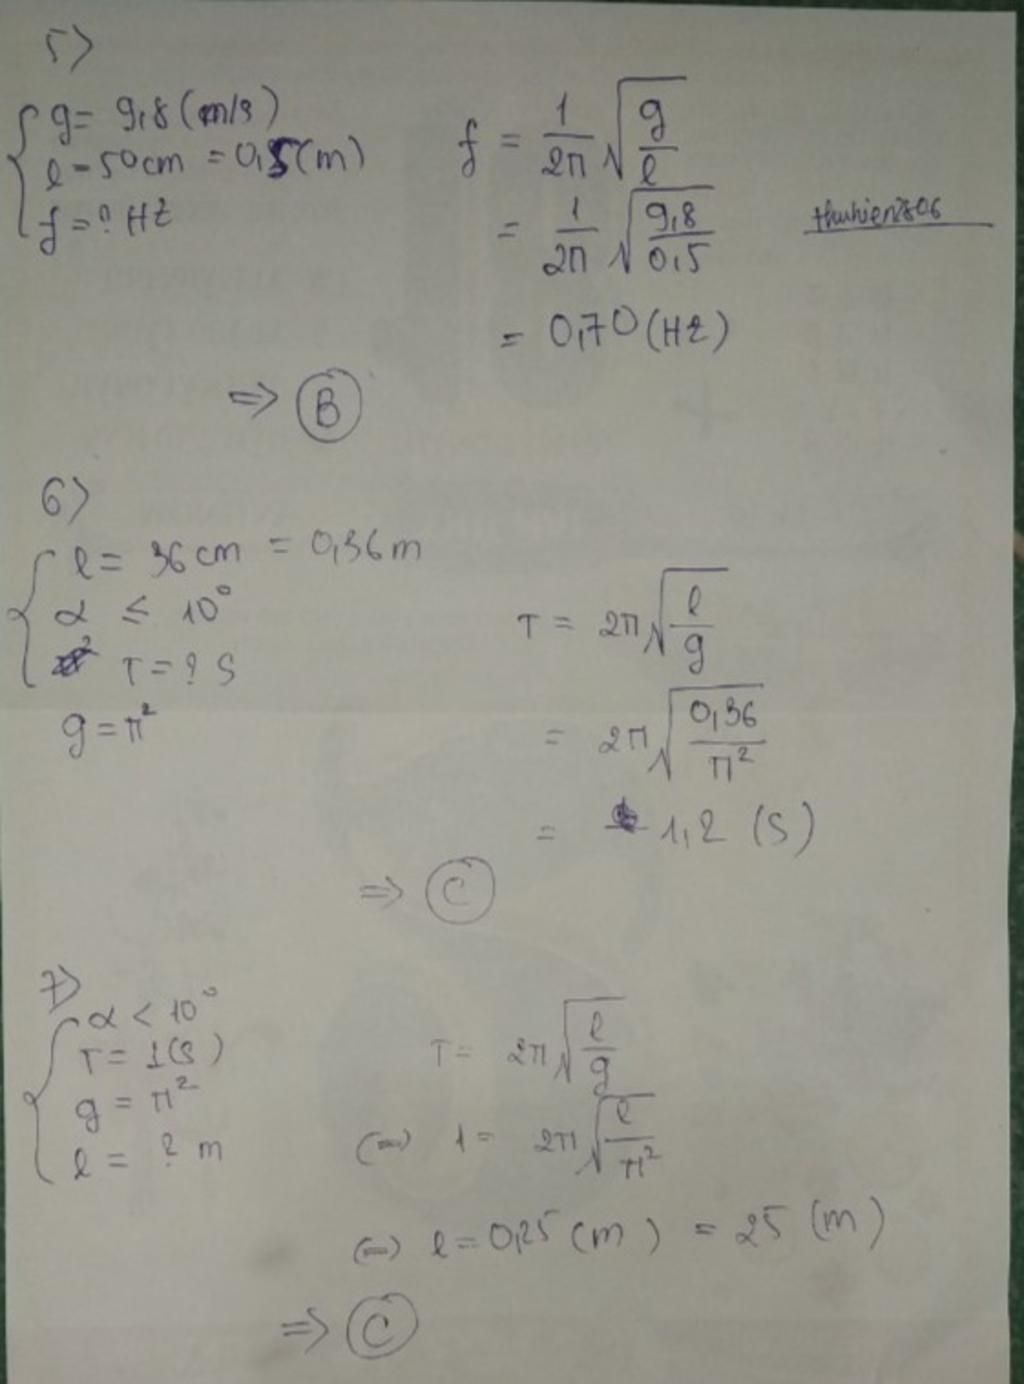 5>
g = 9,8 (m/s)
l = 50 cm = 0,5 (m)
f = ? Hz
f = 1/2π √(g/l)
= 1/2π √(9,8/0,5)
thuhien2806
= 0,70 (Hz)
=> B
6>
l = 36 cm = 0,36 m
α ≤ 10°
T = ? S
g = π²
T = 2π √(l/g)
= 2π √(0,36/π²)
= 1,2 (S)
=> C
7>
α < 10°
T = 1 (S)
g = π²
l = ? m
T = 2π √(l/g)
(=) 1 = 2π √(l/π²)
(=) l = 0,25 (m) = 25 (m)
=> C